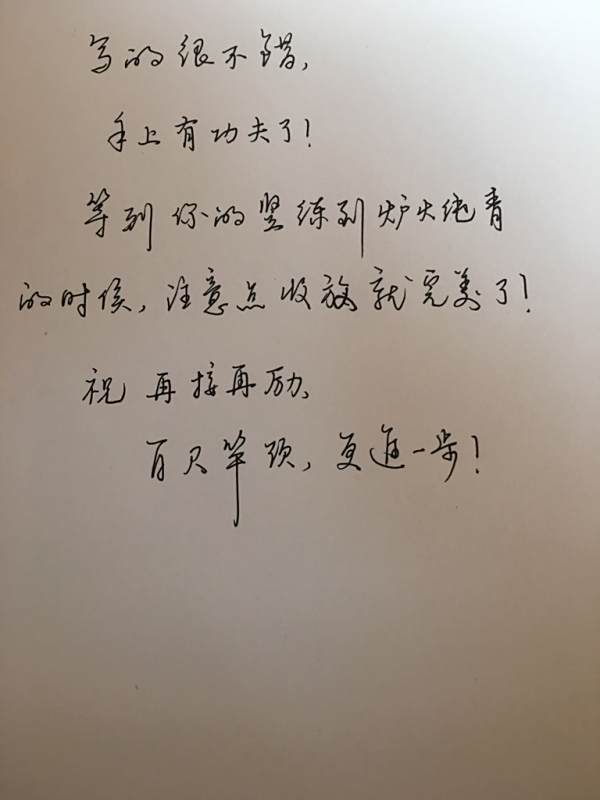 写的很不错,
手上有功夫了!
等到你的竖练到炉火纯青
的时候,注意点收放就完美了!
祝 再接再励、
百尺竿头,更進一步!